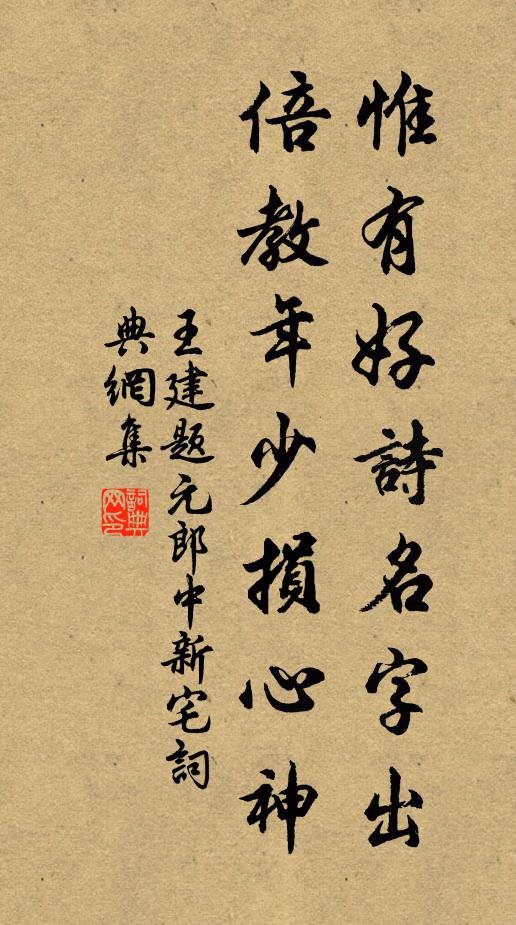 惟有好詩名字出
倍教年少損心神
王建題元郎中新宅詞
典網集
詞典網印